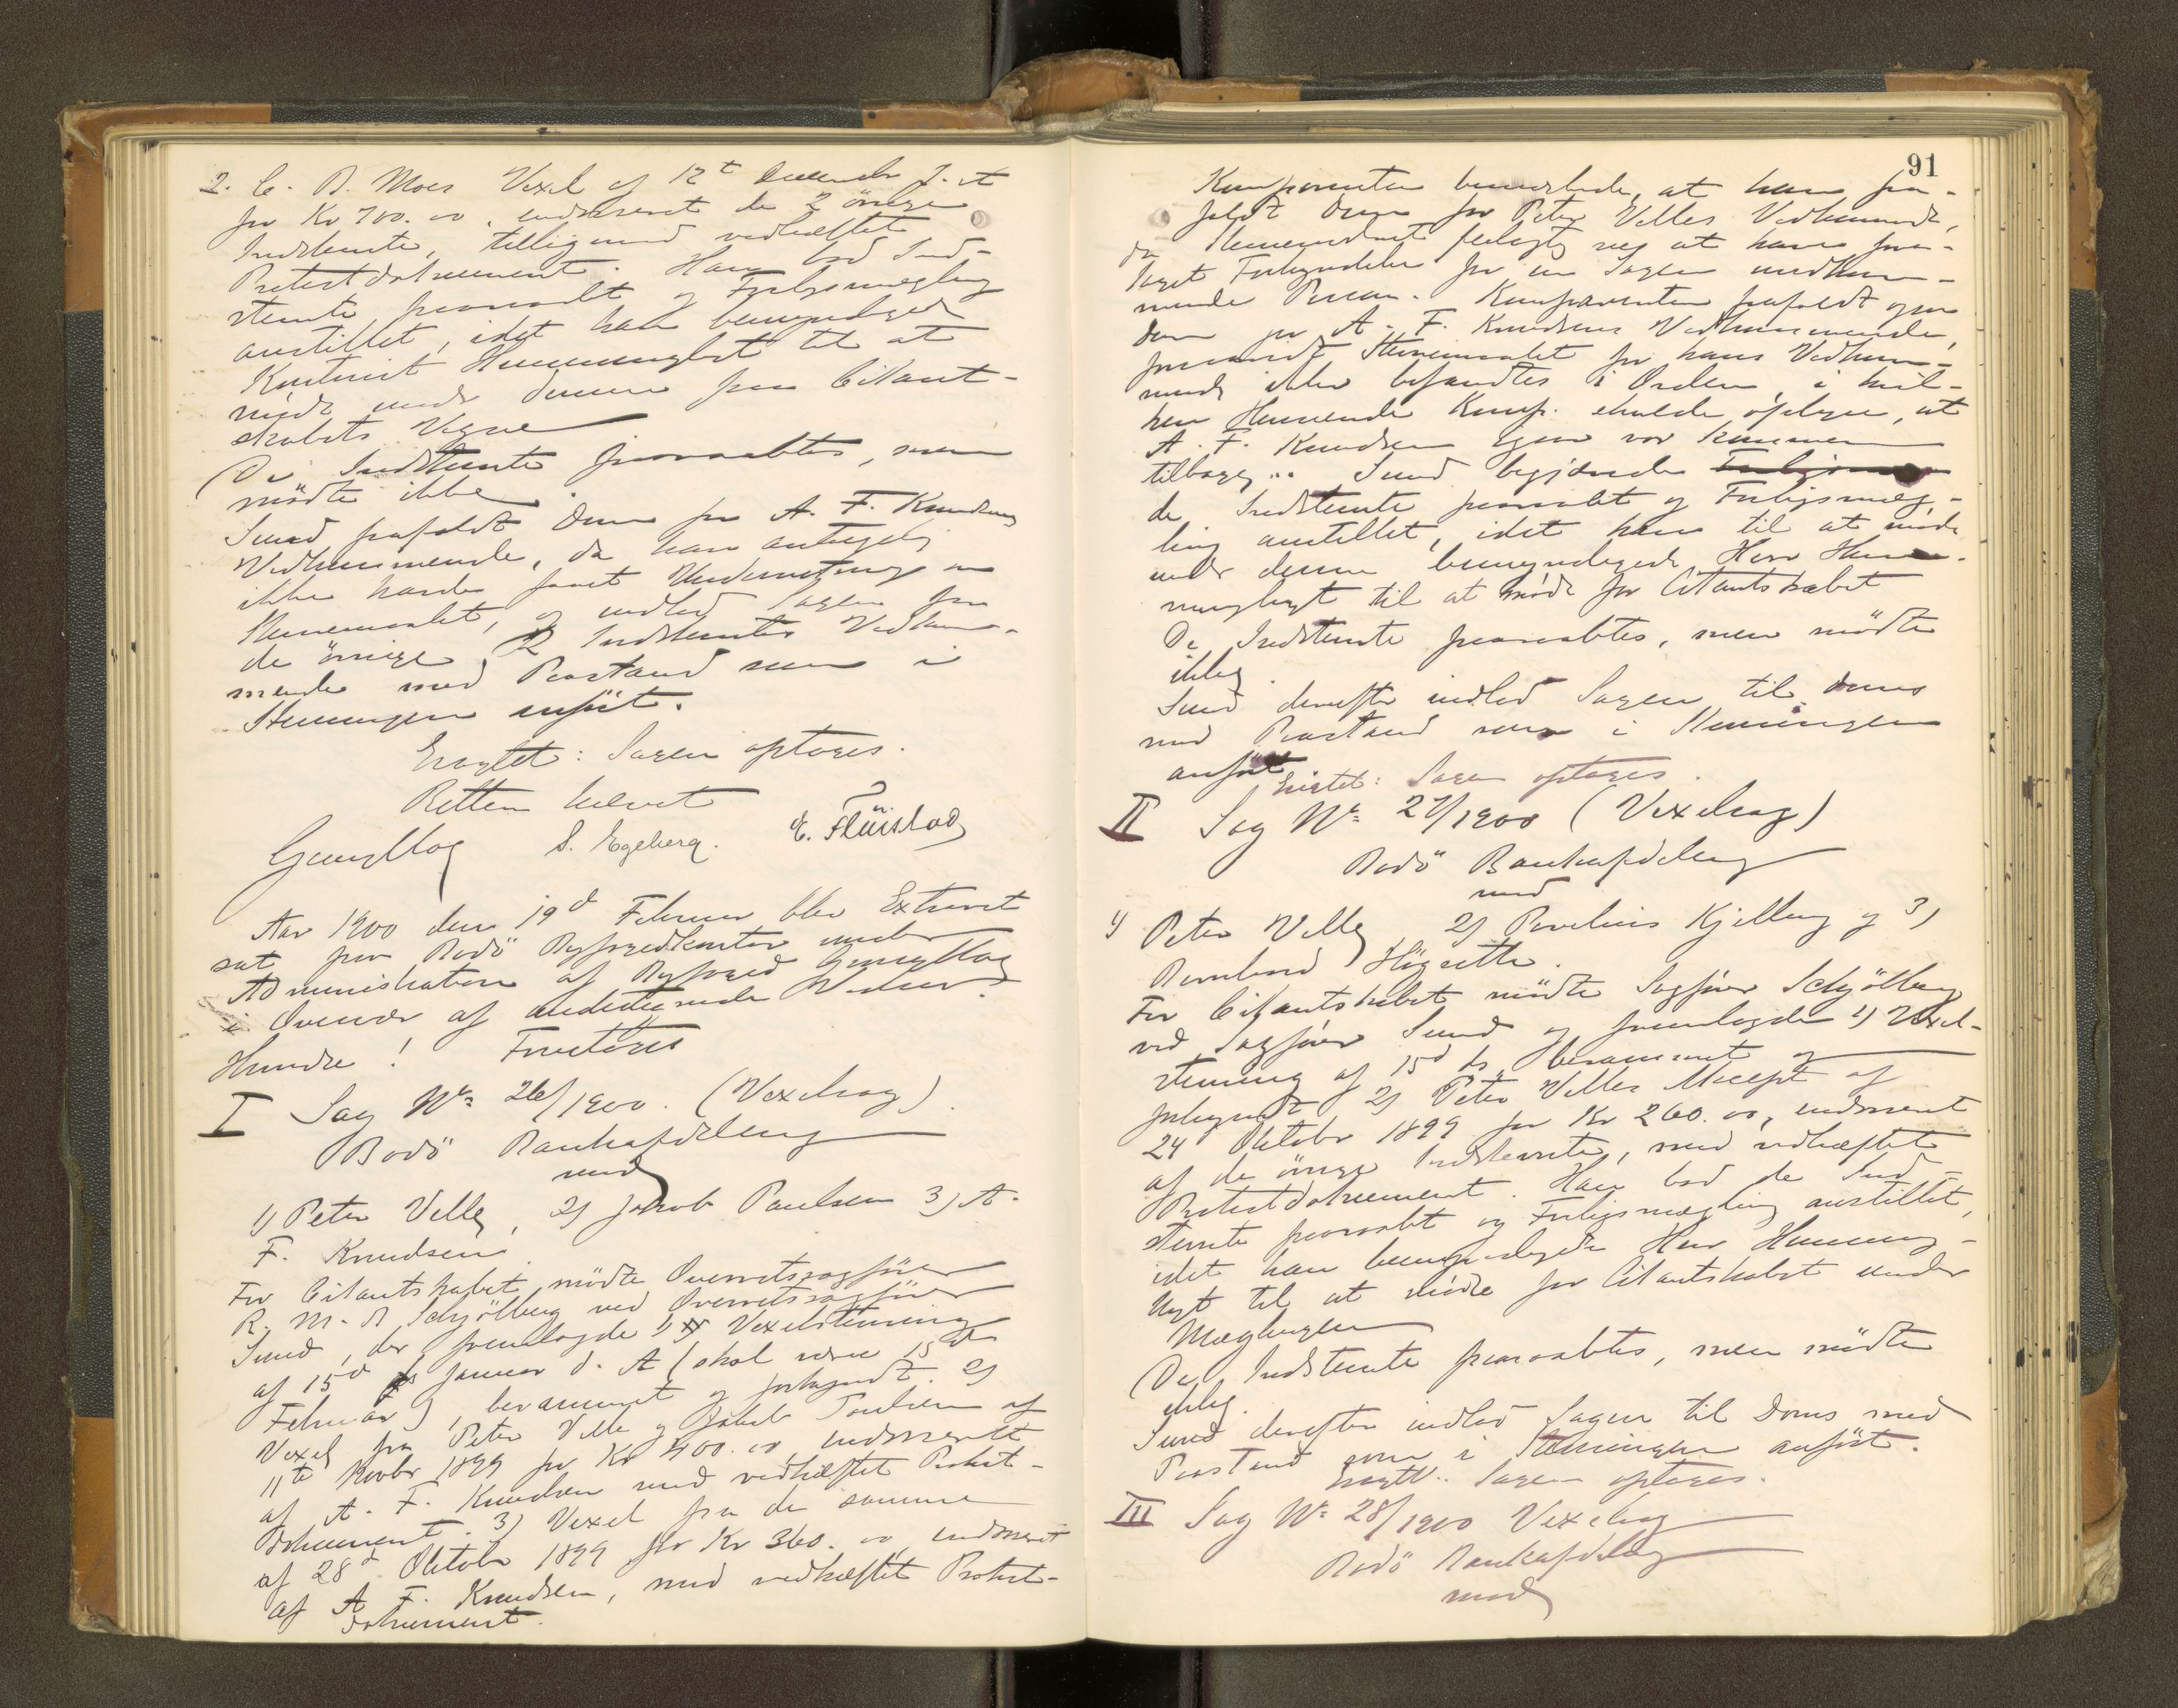 2. C. D. Moes Vexel af 12t December f. A
for Kr 700.00 endosseret de 2 övrige
Indstevnte, tilligemed vedhæftet
Protestdokument. Han bad Ind-
stevnte paaraabt og Forligsmægling
anstillet, idet han bemyndiged
Kontorist Hemmingbyt til at
möde under denne for Citant-
skabets Vegne
De Indstevnte paaraabtes, men
mödte ikke
Sund frafaldt Dom for A. F. Knudsens
Vedkommende, da han antagelig
ikke havde faaet Underretning om
Stevnemaalet, og indlod Sagen for
de övrige 2 Indstevntes Vedkom-
mende med Paastand som i
Stevningen anfört.
Eragtet: Sagen optages.
Retten hævet
S. Egeberg. E. Fluistad
Aar 1900 den 19d Februar blev Extraret
sat paa Bodö Byfogedkontor under
Administration af Byfoged
i Overvær af undertegnede Vidner.
Hvorda! Foretoges
I Sag No 26/1900. (Vexelsag).
Bodö Bankafdeling
mod
1) Peter Velle, 2) Jakob Paulsen 3) A.
F. Knudsen
For Citantskabet mödte Overretssagförer
R. M. B Schjölberg ved Overretssagförer
Sund, der fremlagde 1) Vexelstevning
af 15d Januar d. A (skal være 15de
Februar), berammet og forkyndt. 2)
Vexel fra Peter Velle og Jakob Paulsen af
11te Novbr 1899 for Kr 400.00 endosseret
af A. F. Knudsen med vedhæftet Protest-
dokument. 3) Vexel fra de samme
af 28d Oktober 1899 for Kr 360.00 endosseret
af A F. Knudsen, med vedhæftet Protest-
dokument.
91
Komparenten bemærkede, at han fra-
faldt Dom for Peter Velles Vedkommende,
da Stevnevidnet feilagtig
taget Forkyndelse for en Sagen uvedkom-
mende Person. Komparenten frafaldt ogsaa
Dom for A. F. Knudsens Vedkommende,
forsaavidt Stevnemaalet for hans Vedkom-
mende ikke befandtes i Orden, i hvil-
ken Henseende Komp. skulde oplyse, at
A. F. Knudsen igjen var kommen
tilbage. Sund begjærede
de Indstevnte paaraabt og Forligsmæg-
ling anstillet, idet han til at möde
under denne bemyndigede Herr Hem-
mingbyt til at möde for Citantskabet
De Indstevnte paaraabtes, men mödte
ikke.
Sund derefter indlod Sagen til Doms
med Paastand som i Stevningen
anfört.
Eragtet: Sagen optages.
II Sag No 27/1900 (Vexelsag)
Bodö Bankafdeling
mod
1) Peter Velle 2) Kjelberg og 3)
Bernhard
For Citantskabet mödte Sagförer Schjölberg
ved Sagförer Sund og fremlagde 1) Vexel-
stevning af 15d ds. berammet og
forkyndt 2) Peter Velles Accept af
24 Oktober 1899 for Kr 260.00, endosseret
af de övrige Indstevnte, med vedhæftet
Protestdokument. Han bad de Ind-
stevnte paaraabt og Forligsmægling anstillet,
idet han bemyndigede Herr Hemming-
byt til at möde for Citantskabet under
Mæglingen
De Indstevnte paaraabtes, men mödte
ikke.
Sund derefter indlod Sagen til Doms med
Paastand som i Stevningen anfört.
Eragtet: Sagen optages.
III Sag No 28/1900 Vexelsag
Bodö Bankafdeling
mod